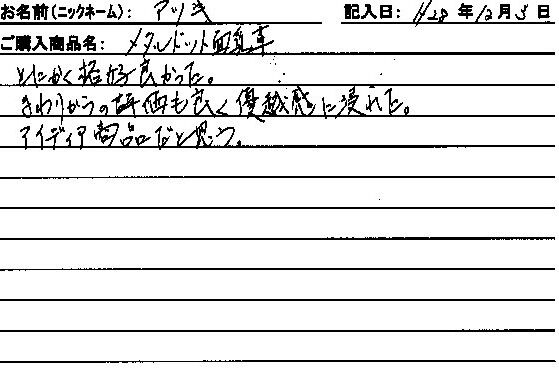 お名前(ニックネーム): アツ氏 記入日: H28年12月5日
ご購入商品名: メタルドット
とにかく格好良かった。
まわりからの評価も良く優越感に浸れた。
アイディア商品だと思う。